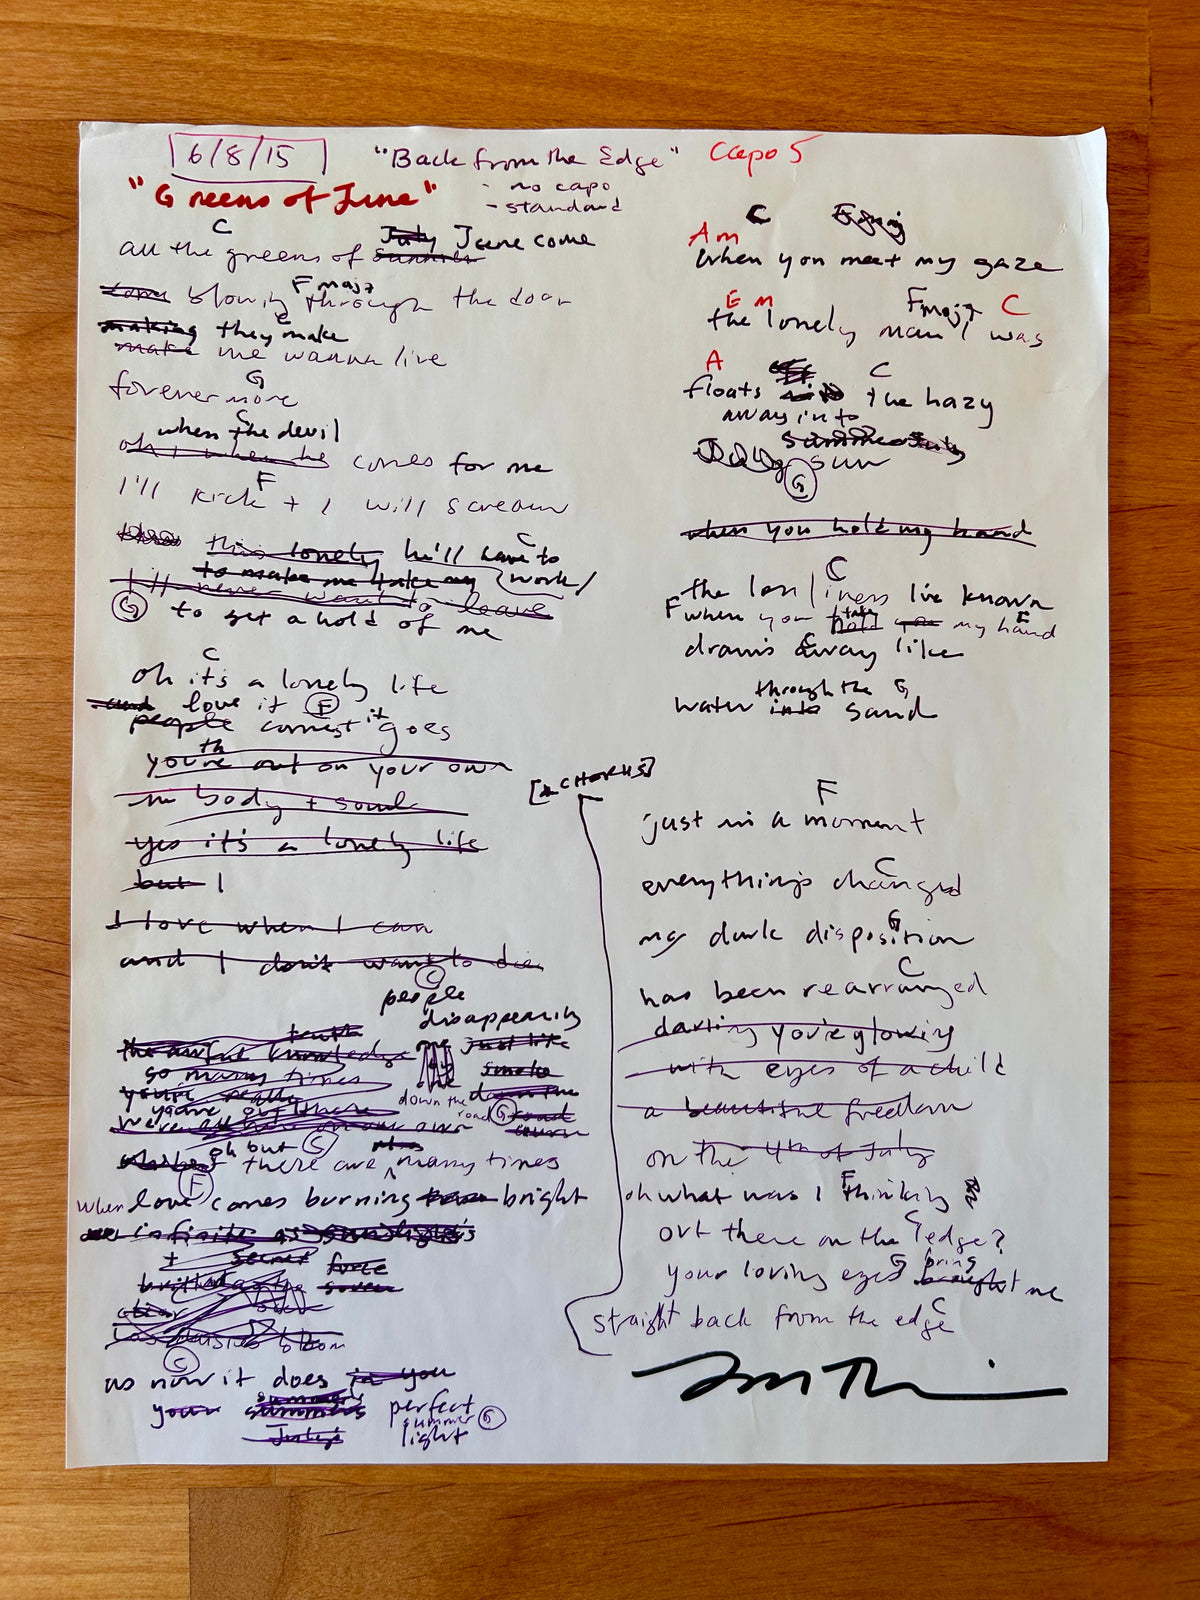 6/8/15
"Back from the Edge" Capo 5
"Greens of June"
- no capo
- standard
C July June come
all the greens of summer
Fmaj7
come blowing through the door
making they make
make me wanna live
G
forever more
C
when the devil
oh when he comes for me
F
I'll kick + I will scream
C
this lonely he'll have to
to make me take my (work)
I'll never want to leave
G to get a hold of me
C
oh it's a lonely life
and love it F it
people comes goes
th
you're out on your own
in body + soul
yes it's a lonely life
but I
I love when I can
and I don't want to die
C
people
disappearing
truth
the awful knowledge me just like
so many times smoke
you're really down the down the
you're out there road G road
we're all on our own
oh but C
there are many times
F
when love comes burning bright
infinite as sunlight's
+ secret force
brilliant as the
C
as now it does in you
summers
your summers perfect
summer G
July's light
C Fmaj7
Am
when you meet my gaze
Em Fmaj7 C
the lonely man I was
A C
floats the hazy
away into
summer July
July sun
G
when you hold my hand
C
the lonliness I've known
F when you take hold my hand F
C
drains away like
through the G
water into sand
[CHORUS]
F
just in a moment
C
everything's changed
G
my dark disposition
C
has been rearranged
darling you're glowing
with eyes of a child
a beautiful freedom
on the 4th of July
F
oh what was I thinking
C
out there on the ledge?
G bring
your loving eyes brought me
C
straight back from the edge